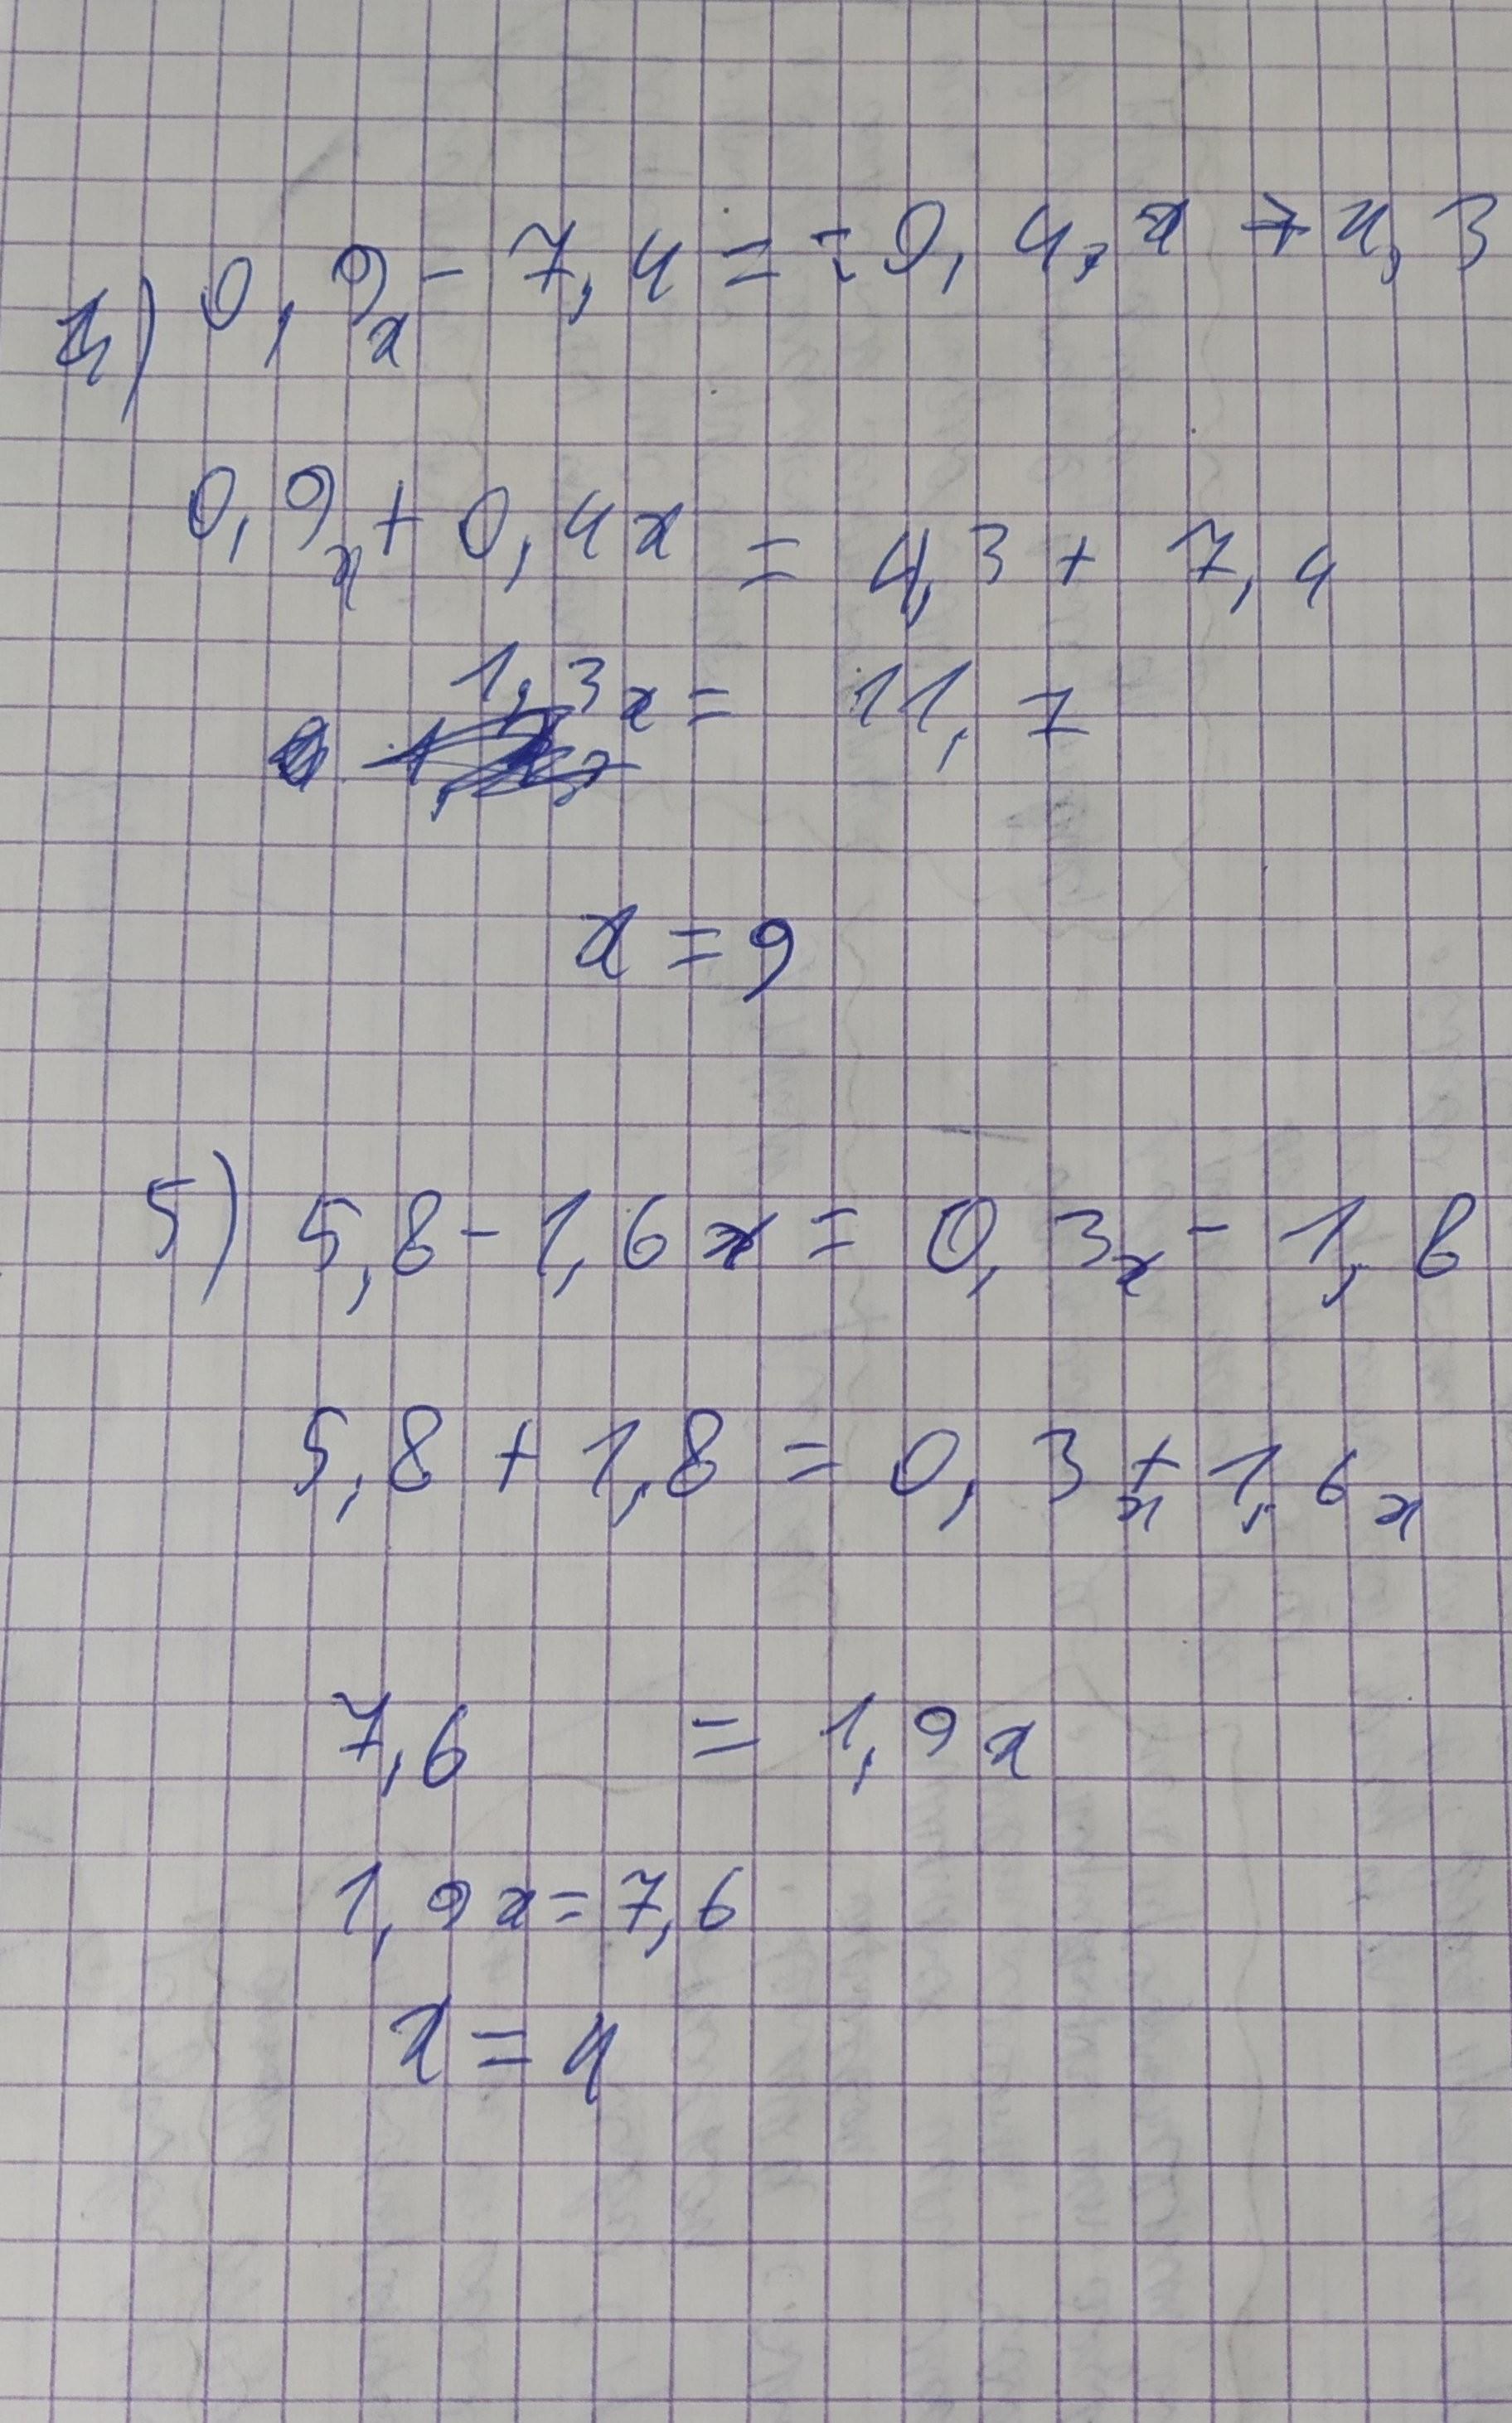 4) 0,9x - 7,4 = -0,4x + 4,3
0,9x + 0,4x = 4,3 + 7,4
1,3x = 11,7
x = 9
5) 5,8 - 1,6x = 0,3x - 1,8
5,8 + 1,8 = 0,3x + 1,6x
7,6 = 1,9x
1,9x = 7,6
x = 4